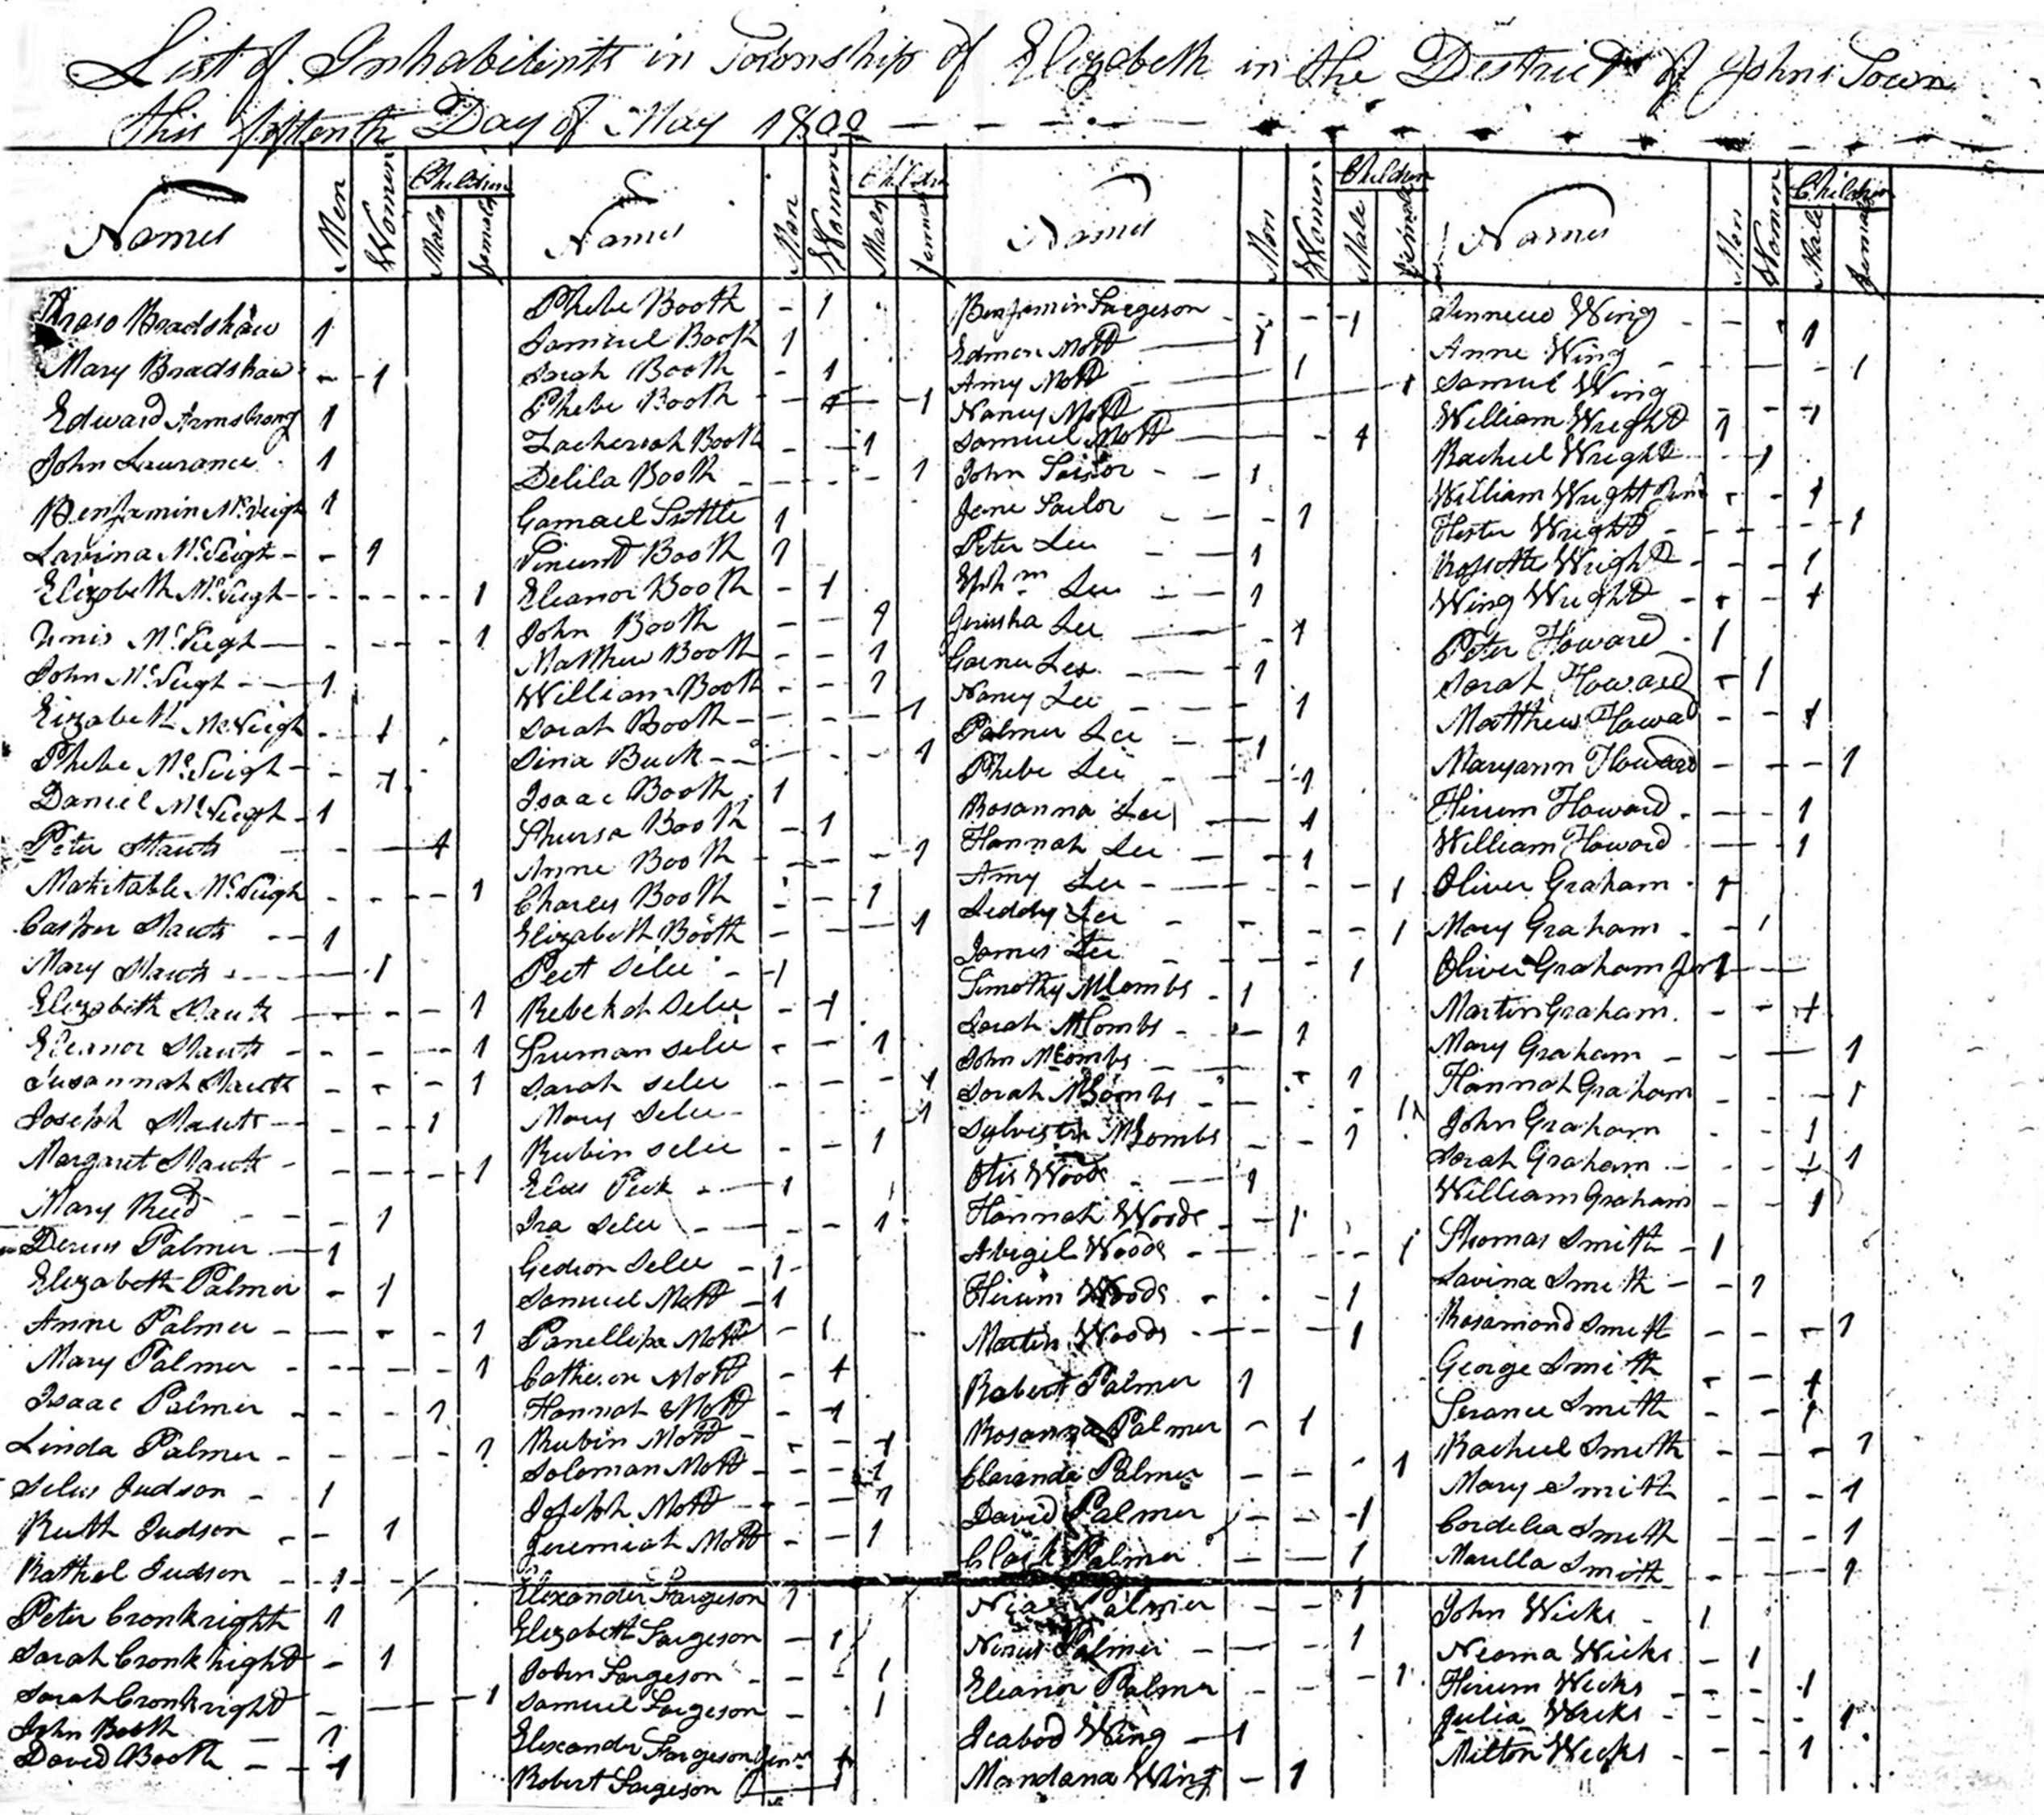 List of Inhabitints in Township of Elizabeth in the District of Johns Town
this fifttenth Day of May 1800
Names Men Women Children Male female
Names Men Women Children Male female
Names Men Women Children Male female
Names Men Women Children Male female
Bradshaw 1
Mary Bradshaw 1
Edward Armstrong 1
John Laurance 1
Benjamin McVeigh 1
Lavina McVeigh 1
Elizabeth McVeigh 1
Unis McVeigh 1
John McVeigh 1
Elizabeth McVeigh 1
Phebe McVeigh 1
Daniel McVeigh 1
Peter Mants 1
Mahitable McVeigh 1
Casper Mants 1
Mary Mants 1
Elizabeth Mants 1
Eleanor Mants 1
Susannah Mants 1
Joseph Mants 1
Margaret Mants 1
Mary Reed 1
Derius Palmer 1
Elizabeth Palmer 1
Anne Palmer 1
Mary Palmer 1
Isaac Palmer 1
Linda Palmer 1
Silus Judson 1
Ruth Judson 1
Rathel Judson 1
Peter Cronkright 1
Sarah Cronkhight 1
Sarah Cronkright 1
John Booth 1
David Booth 1
Phebe Booth 1
Samuel Booth 1
Sarah Booth 1
Phebe Booth 1
Zacheriah Booth 1
Delila Booth 1
Gamael Tuttle 1
Vincent Booth 1
Eleanor Booth 1
John Booth 1
Matthew Booth 1
William Booth 1
Sarah Booth 1
Sina Buck 1
Isaac Booth 1
Thursa Booth 1
Anne Booth 1
Charles Booth 1
Elizabeth Booth 1
Peet Selee 1
Rebekah Selee 1
Truman Selee 1
Sarah Selee 1
Mary Selee 1
Rubin Selee 1
Elias Peek 1
Ira Selee 1
Gedion Selee 1
Samuel Mott 1
Panellipa Mott 1
Catheron Mott 1
Hannah Mott 1
Rubin Mott 1
Soloman Mott 1
Joseph Mott 1
Jeremiah Mott 1
Elexander Fargeson 1
Elizabeth Fargeson 1
John Fargeson 1
Samuel Fargeson 1
Elexander Fargeson Junr 1
Robert Fargeson 1
Benjamin Fargeson 1
Edmon Mott 1
Amy Mott 1
Nancy Mott 1
Samuel Mott 1
John Tailor 1
Jene Tailor 1
Peter Lee 1
Ephm Lee 1
Jerusha Lee 1
Garner Lee 1
Nancy Lee 1
Palmer Lee 1
Phebe Lee 1
Rosanna Lee 1
Hannah Lee 1
Amy Lee 1
Leddy Lee 1
James Lee 1
Timothy Mcombs 1
Sarah Mcombs 1
John Mcombs 1
Sarah Mcombs 1
Sylvester Mcombs 1
Otis Woods 1
Hannah Woods 1
Abigil Woods 1
Hirum Woods 1
Martin Woods 1
Robert Palmer 1
Rosanna Palmer 1
Claranda Palmer 1
David Palmer 1
Clark Palmer 1
Palmer 1
Palmer 1
Eleanor Palmer 1
Icabod Wing 1
Mandana Wing 1
Wing 1
Anne Wing 1
Samuel Wing 1
William Wright 1
Rachel Wright 1
William Wright Junr 1
Hester Wright 1
Rossette Wright 1
Wing Wright 1
Peter Howard 1
Sarah Howard 1
Matthew Howad 1
Maryann Howard 1
Hirum Howard 1
William Howard 1
Oliver Graham 1
Mary Graham 1
Oliver Graham Jur 1
Martin Graham 1
Mary Graham 1
Hannah Graham 1
John Graham 1
Sarah Graham 1
William Graham 1
Thomas Smith 1
Lavina Smith 1
Rosamond Smith 1
George Smith 1
Terance Smith 1
Racheel Smith 1
Mary Smith 1
Cordelia Smith 1
Marilla Smith 1
John Wicks 1
Neoma Wicks 1
Hirum Weeks 1
Julia Weeks 1
Milton Weeks 1